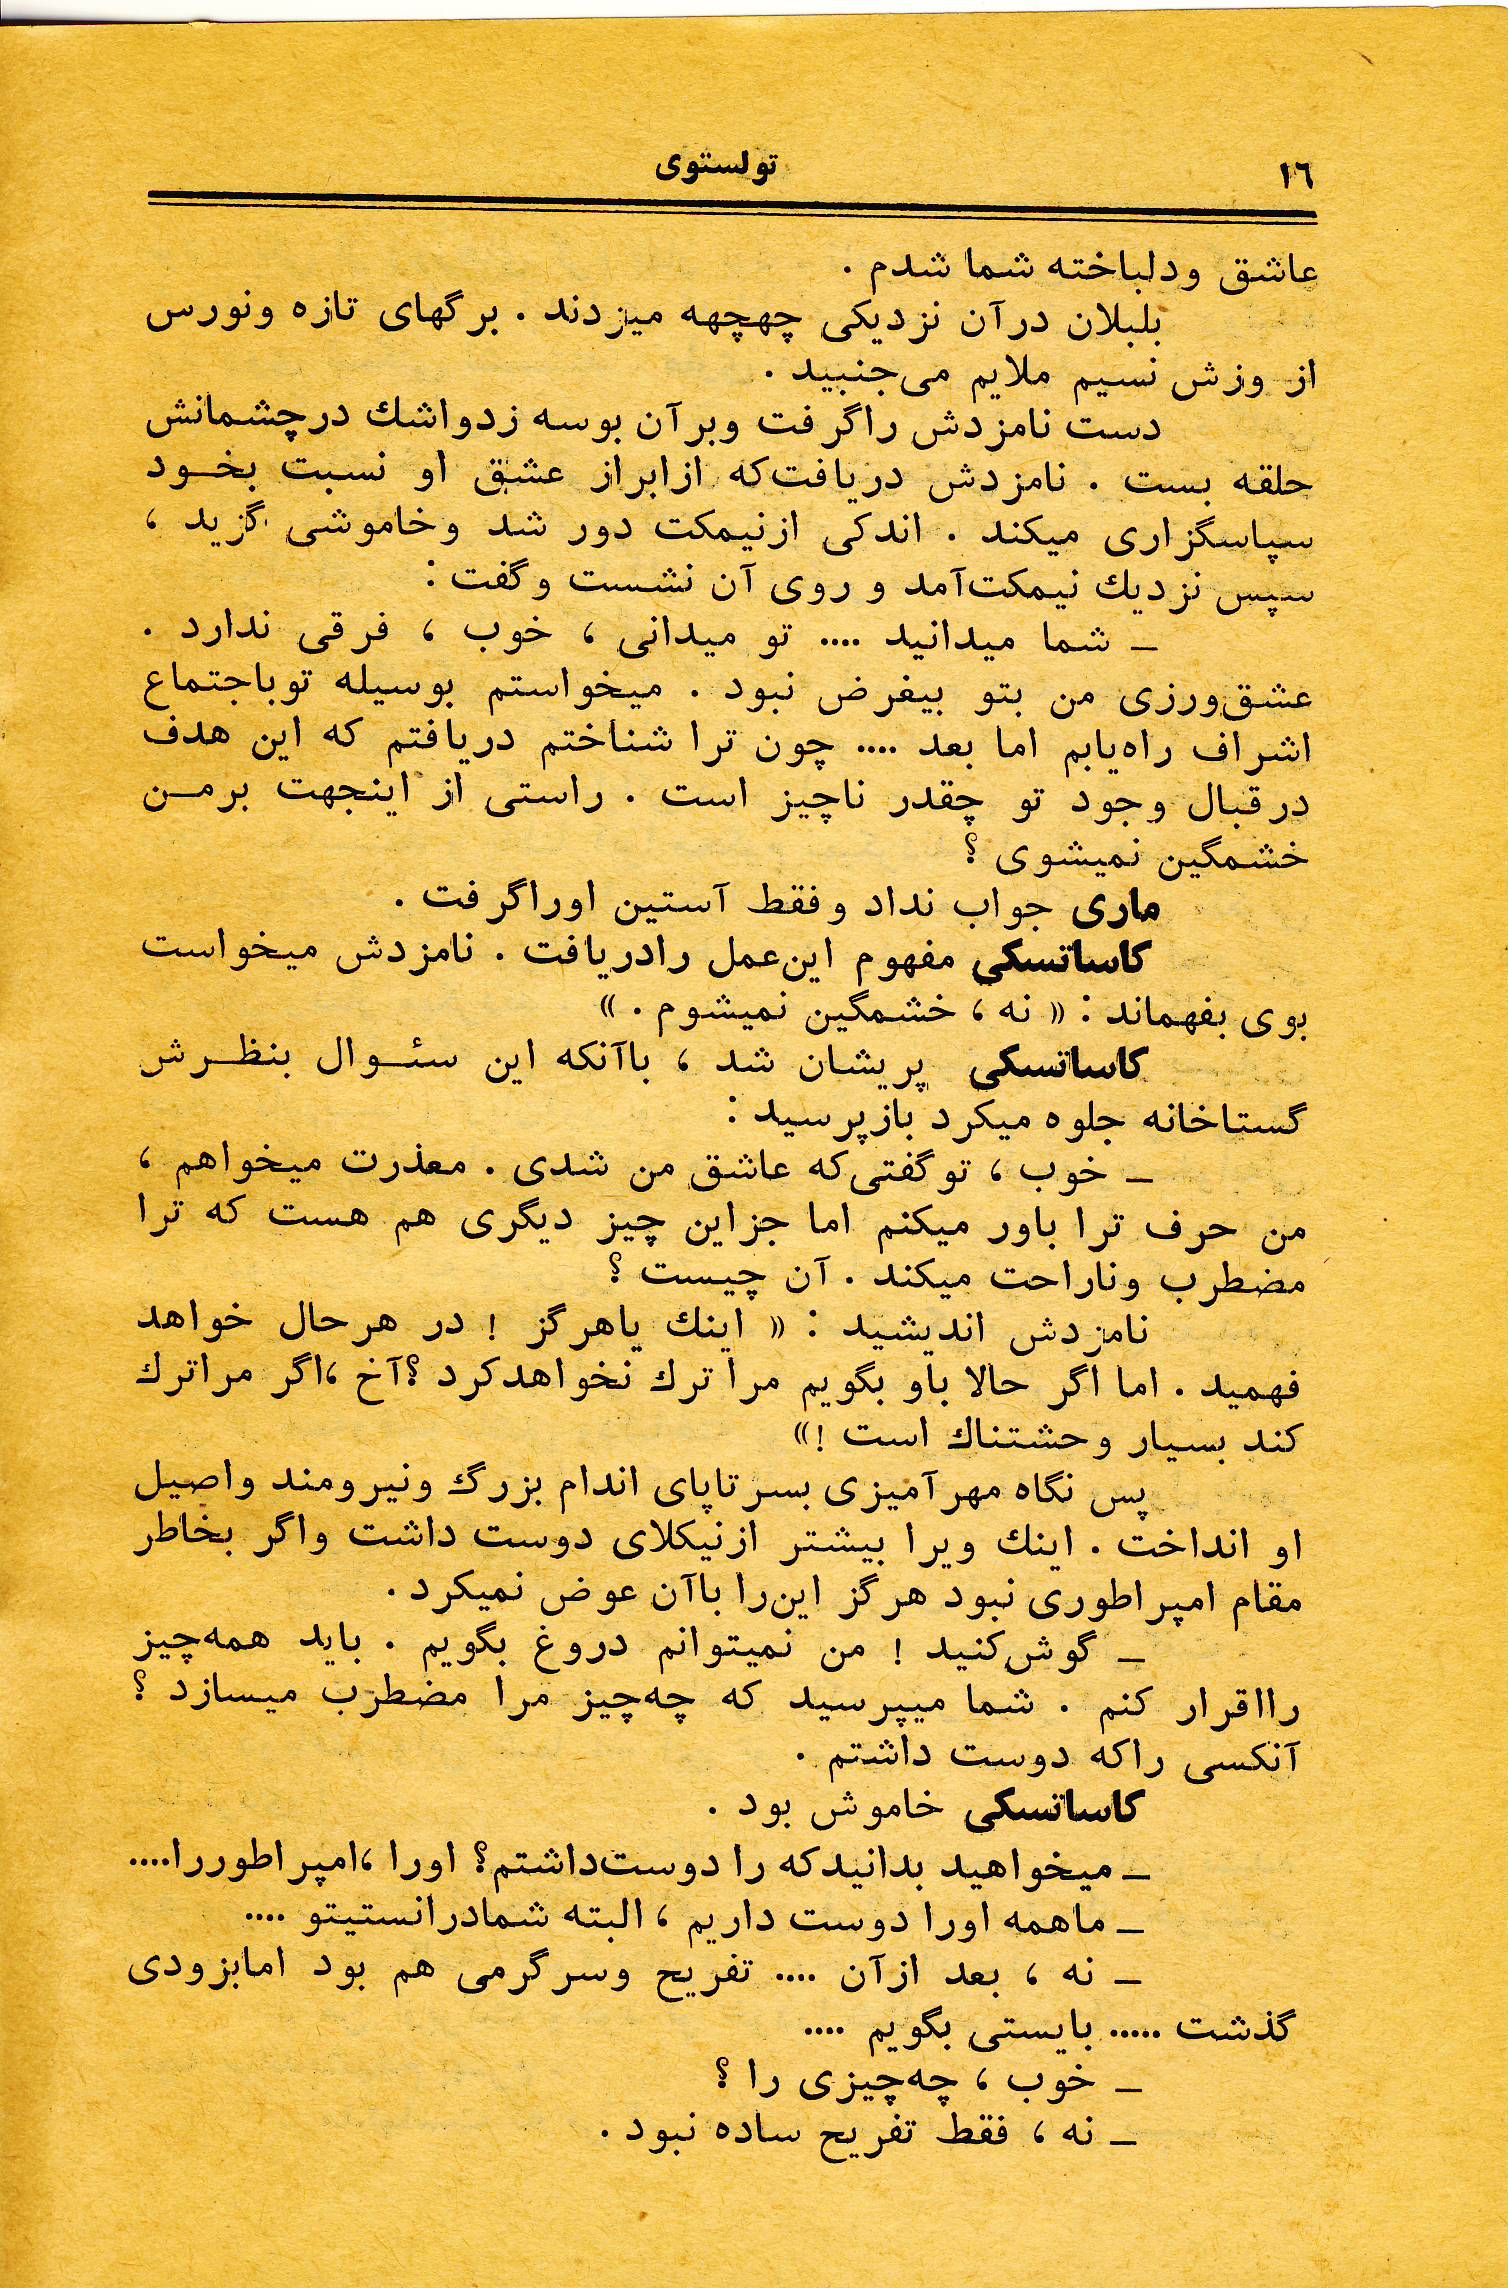 ١٦
تولستوی
عاشق ودلباخته شما شدم .
بلبلان درآن نزدیکی چهچهه میزدند . برگهای تازه ونورس
از وزش نسیم ملایم می‌جنبید .
دست نامزدش راگرفت وبرآن بوسه زدواشك درچشمانش
حلقه بست . نامزدش دریافت‌که ازابراز عشق او نسبت بخود
سپاسگزاری میکند . اندکی ازنیمکت دور شد وخاموشی گزید ،
سپس نزدیك نیمکت‌آمد و روی آن نشست وگفت :
ــ شما میدانید .... تو میدانی ، خوب ، فرقی ندارد .
عشق‌ورزی من بتو بیغرض نبود . میخواستم بوسیله توباجتماع
اشراف راه‌یابم اما بعد .... چون ترا شناختم دریافتم که این هدف
درقبال وجود تو چقدر ناچیز است . راستی از اینجهت برمن
خشمگین نمیشوی ؟
ماری جواب نداد وفقط آستین اوراگرفت .
کاساتسکی مفهوم این‌عمل رادریافت . نامزدش میخواست
بوی بفهماند : « نه ، خشمگین نمیشوم . »
کاساتسکی پریشان شد ، باآنکه این سئوال بنظرش
گستاخانه جلوه میکرد بازپرسید :
ــ خوب ، توگفتی‌که عاشق من شدی . معذرت میخواهم ،
من حرف ترا باور میکنم اما جزاین چیز دیگری هم هست که ترا
مضطرب وناراحت میکند . آن چیست ؟
نامزدش اندیشید : « اینك یاهرگز ! در هرحال خواهد
فهمید . اما اگر حالا باو بگویم مرا ترك نخواهدکرد ؟ آخ ،اگر مراترك
کند بسیار وحشتناك است !»
پس نگاه مهرآمیزی بسرتاپای اندام بزرگ ونیرومند واصیل
او انداخت . اینك ویرا بیشتر ازنیکلای دوست داشت واگر بخاطر
مقام امپراطوری نبود هرگز این‌را باآن عوض نمیکرد .
ــ گوش‌کنید ! من نمیتوانم دروغ بگویم . باید همه‌چیز
رااقرار کنم . شما میپرسید که چه‌چیز مرا مضطرب میسازد ؟
آنکسی راکه دوست داشتم .
کاساتسکی خاموش بود .
ــ میخواهید بدانیدکه را دوست‌داشتم؟ اورا ،امپراطوررا....
ــ ماهمه اورا دوست داریم ، البته شمادرانستیتو ....
ــ نه ، بعد ازآن .... تفریح وسرگرمی هم بود امابزودی
گذشت ..... بایستی بگویم ....
ــ خوب ، چه‌چیزی را ؟
ــ نه ، فقط تفریح ساده نبود .